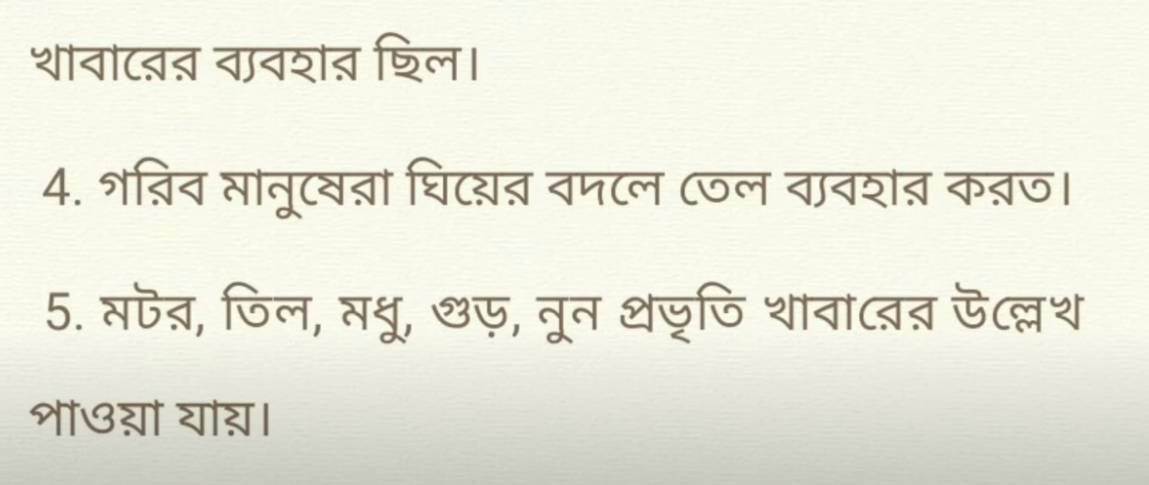 খাবারের ব্যবহার ছিল।
4. গরিব মানুষেরা ঘিয়ের বদলে তেল ব্যবহার করত।
5. মটর, তিল, মধু, গুড়, নুন প্রভৃতি খাবারের উল্লেখ
পাওয়া যায়।